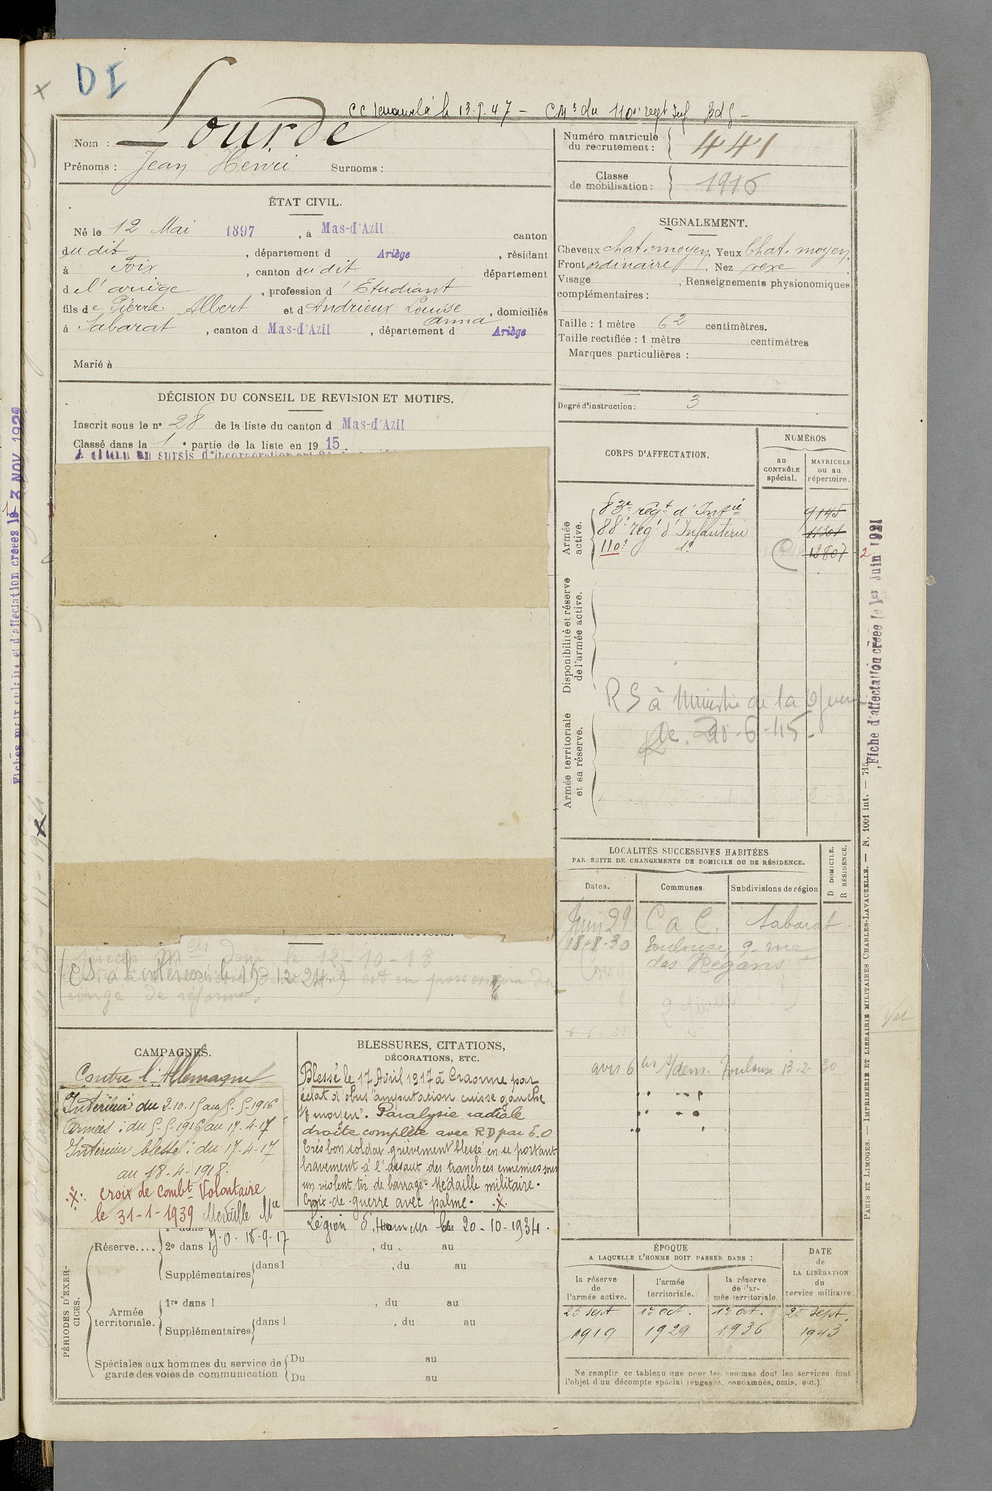 DI
CC renouvelé le 13.9.47 - CMs du 110e regt Inf Bdg -
Nom : Lourde
Prénoms : Jean Henri Surnoms :
Numéro matricule du recrutement : 441
Classe de mobilisation : 1916
ÉTAT CIVIL.
Né le 12 Mai 1897, à Mas-d'Azil canton
du dit, département d Ariège, résidant
à Foix, canton du dit département
de l'ariège, profession d'Étudiant
fils de Pierre Albert et d'Andrieux Louise anna, domiciliés
à Sabarat, canton d Mas-d'Azil, département d Ariège
Marié à
SIGNALEMENT.
Cheveux chat. moyen, Yeux Chat. moyen,
Front ordinaire, Nez vexe
Visage , Renseignements physionomiques
complémentaires :
Taille : 1 mètre 62 centimètres.
Taille rectifiée : 1 mètre centimètres
Marques particulières :
Degré d'instruction : 3
DÉCISION DU CONSEIL DE REVISION ET MOTIFS.
Inscrit sous le n° 28 de la liste du canton d Mas-d'Azil
Classé dans la 1e partie de la liste en 1915
CORPS D'AFFECTATION.
NUMÉROS
au CONTRÔLE spécial.
MATRICULE ou au répertoire.
Armée active.
83e régt d'Infie 9145
88e rég d'Infanterie
110e do 12807
Disponibilité et réserve de l'armée active.
R S à Ministre de la Guerre
de 20-6-45-
Armée territoriale et sa réserve.
LOCALITÉS SUCCESSIVES HABITÉES
PAR SUITE DE CHANGEMENTS DE DOMICILE OU DE RÉSIDENCE.
Dates. Communes Subdivisions de région D DOMICILE. R RÉSIDENCE.
Juin 29 C a C. Sabarat
18-8-30 Toulouse 9 rue
des Régans
Toulouse 13-2-30
le 12-10-18
congé de réforme.
CAMPAGNES.
Contre l'Allemagne
Intérieur du 2.10.15 au 5.5.1916
Armées : du 5.5.1916 au 17.4.17
Intérieur blessé : du 17.4.17
au 18.4.1918.
.X. croix de combt Volontaire
le 31-1-1939 Médaille Mre
J.O. 18-9-17
BLESSURES, CITATIONS,
DÉCORATIONS, ETC.
Blessé le 17 Avril 1917 à Craonne par
éclat d'obus "amputation cuisse gauche
⅓ moyen". Paralysie radiale
droite complète avec R D par E.O
Très bon soldat grièvement blessé en se portant
bravement à l'assaut des tranchées ennemies sous
un violent tir de barrage. Médaille militaire.
Croix-de-guerre avec palme. .X.
Légion d'Honneur le 20-10-1934.
PÉRIODES D'EXERCICES.
Réserve.... 2e dans l , du . au
Supplémentaires dans l , du au
Armée territoriale. 1re dans l , du au
Supplémentaires dans l , du au
Spéciales aux hommes du service de garde des voies de communication Du au
Du au
ÉPOQUE
A LAQUELLE L'HOMME DOIT PASSER DANS :
la réserve de l'armée active. l'armée territoriale. la réserve de l'armée territoriale.
DATE de LA LIBÉRATION du service militaire.
25 sept. 1er oct. 1er oct. 25 sept.
1919 1929 1936 1943
Ne remplir ce tableau que pour les hommes dont les services font
l'objet d'un décompte spécial (engagés, condamnés, omis, etc.).
Fiche d'affectation créée le 1er Juin 1921
Fiches matriculaire et d'affectation créées le 3 NOV 1929
PARIS ET LIMOGES. — IMPRIMERIE ET LIBRAIRIE MILITAIRES CHARLES-LAVAUZELLE. — N. 1001 int. — 715.